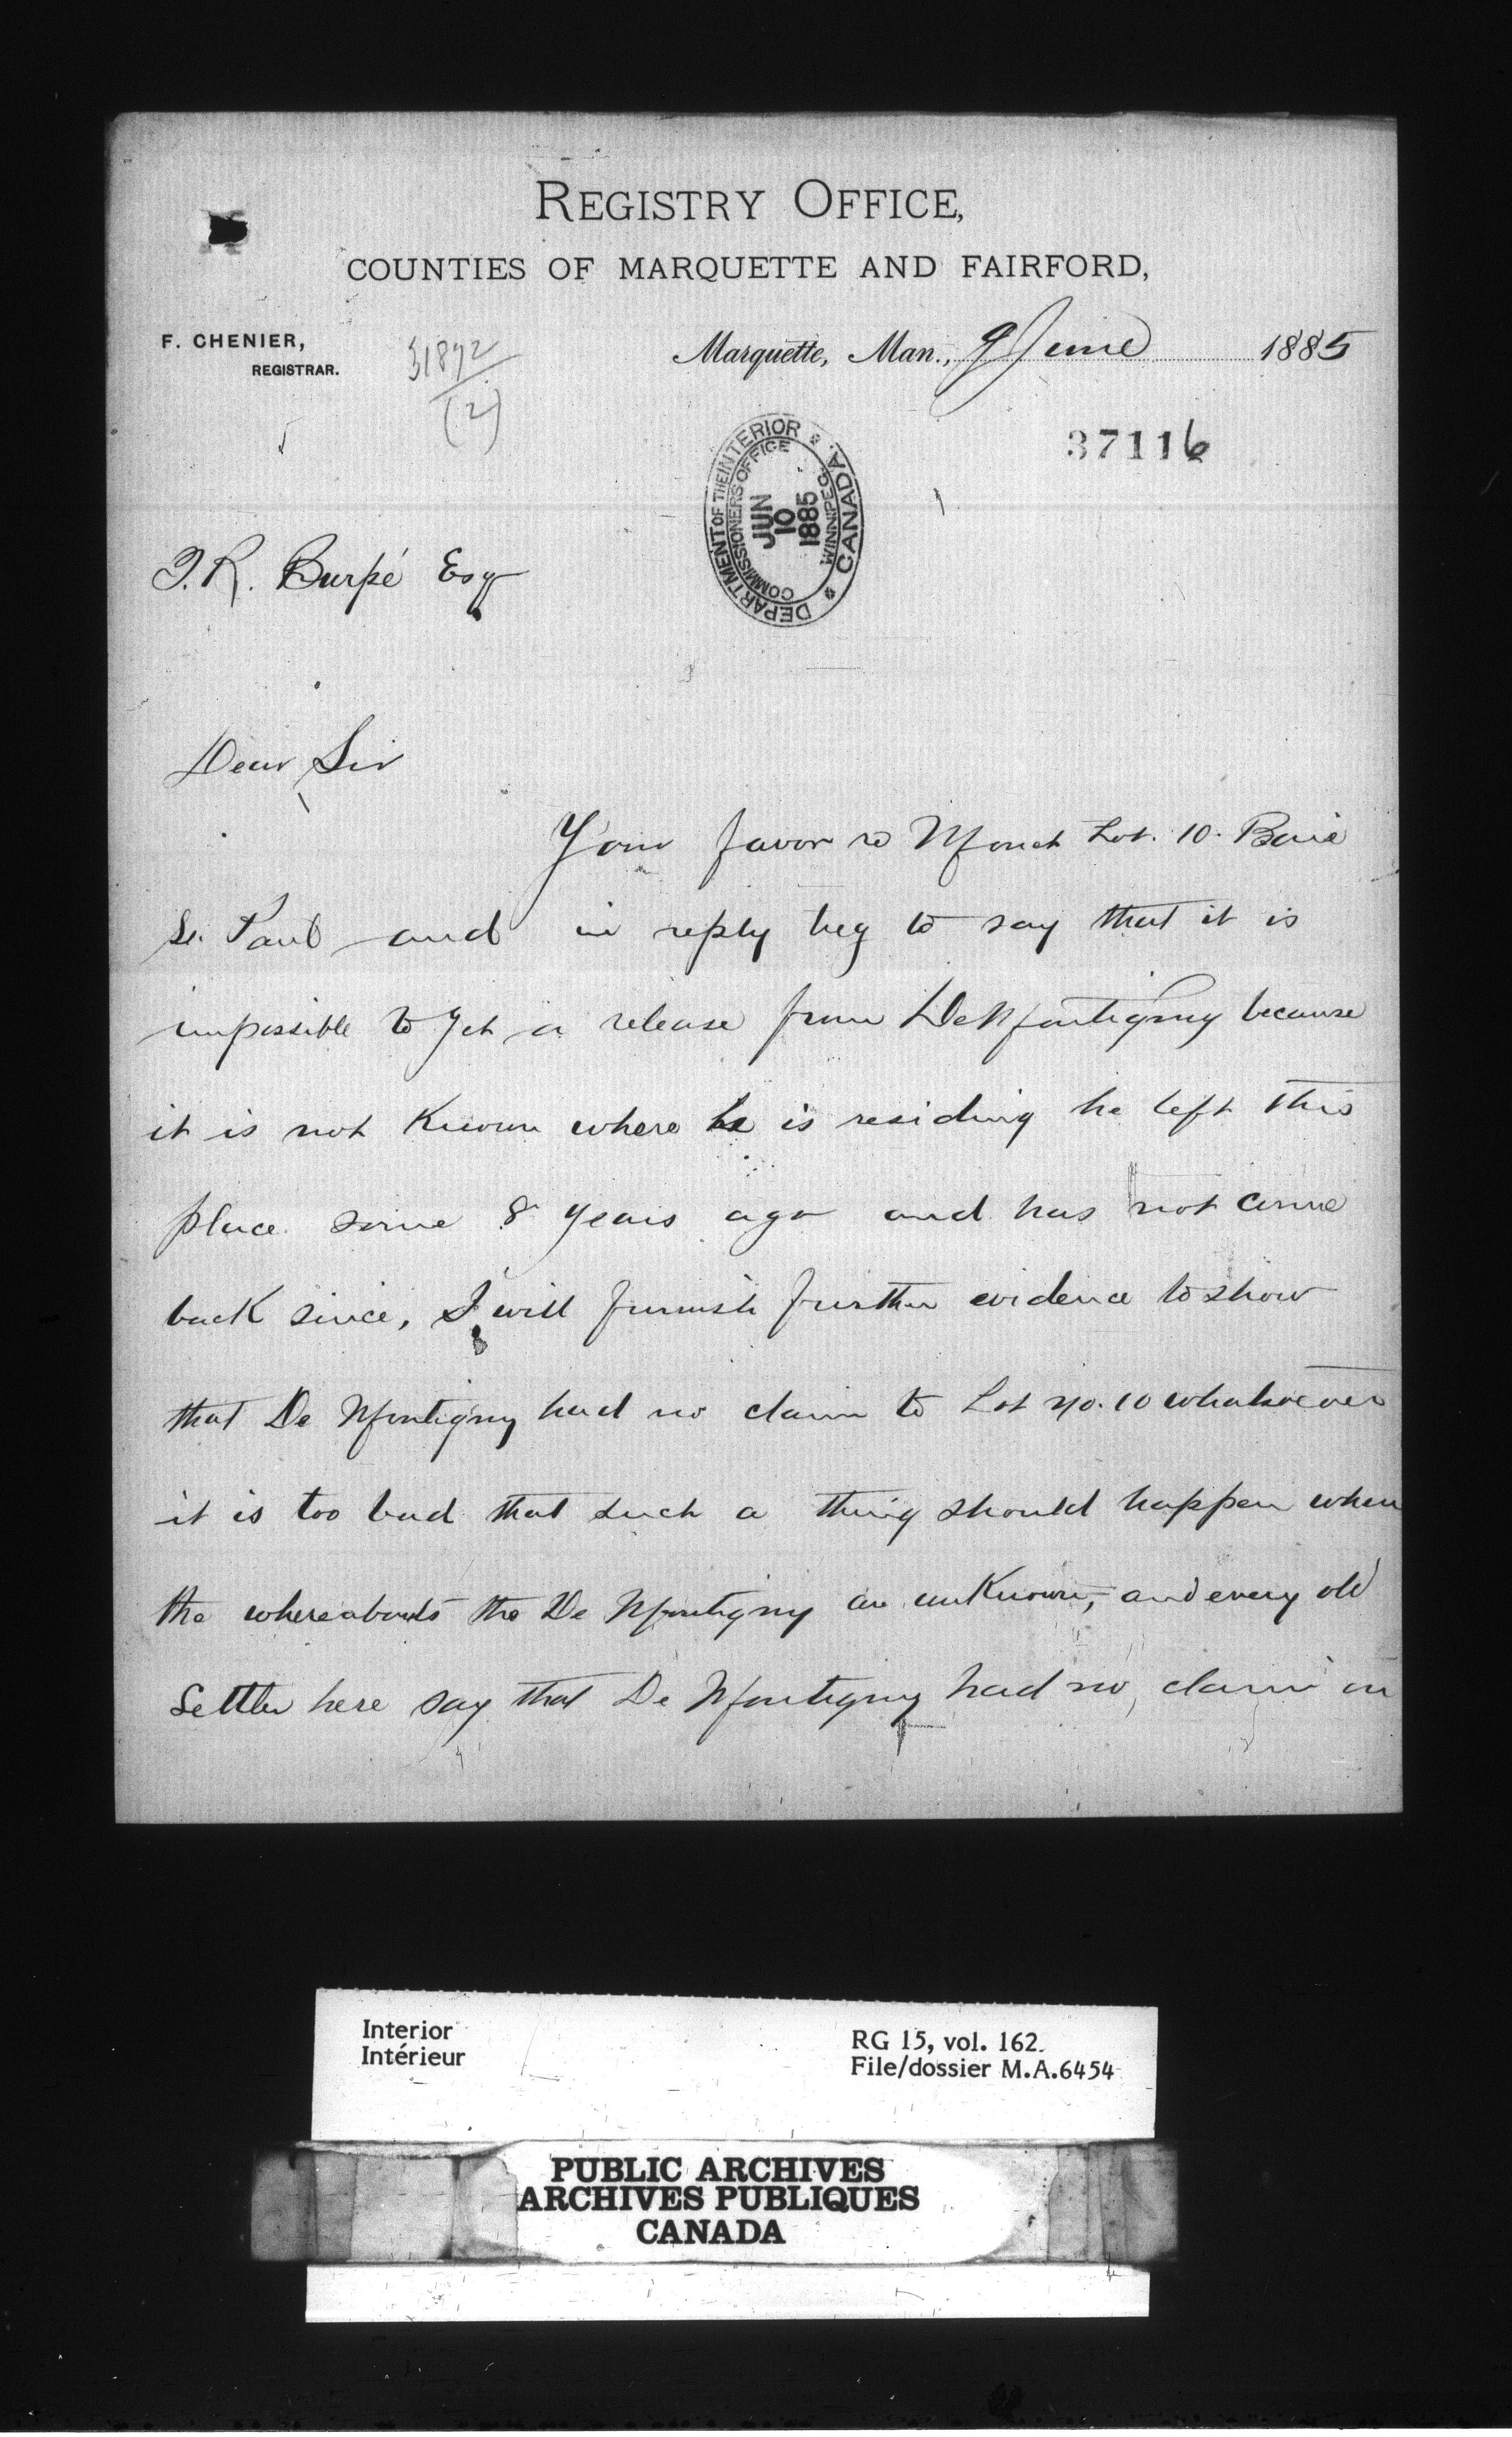 REGISTRY OFFICE,
COUNTIES OF MARQUETTE AND FAIRFORD,
F. CHENIER,
REGISTRAR.
31892
(2)
Marquette, Man., 9 June 1885
37116
DEPARTMENT OF THE INTERIOR * CANADA *
COMMISSIONERS OFFICE WINNIPEG
JUN
10
1885
Burpé Esq
Dear Sir
Your favor re Lot. 10. Baie
St. Paul and in reply beg to say that it is
impossible to get a release from DeMontigny because
it is not Known where he is residing he left this
place some 8 years ago and has not come
back since, I will furnish further evidence to show
that De Montigny had no claim to Lot No. 10 whatsoever
it is too bad that such a thing should happen when
the whereabouts the De Montigny are unKnown, and every old
Settler here say that De Montigny had no claim on
Interior
Intérieur
RG 15, vol. 162.
File/dossier M.A.6454
PUBLIC ARCHIVES
ARCHIVES PUBLIQUES
CANADA